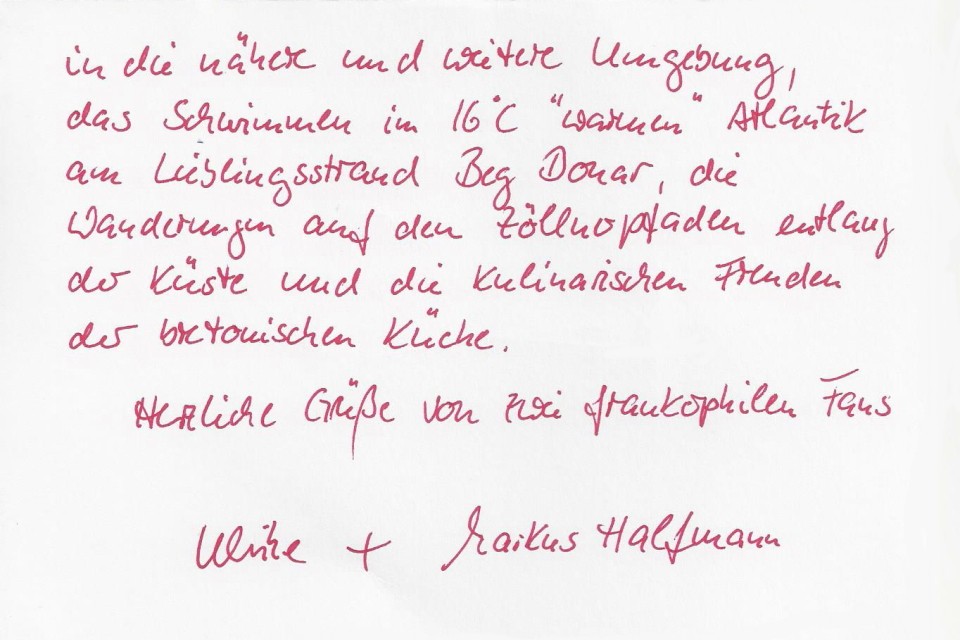 in die nähere und weitere Umgebung,
das Schwimmen im 16°C "warmen" Atlantik
am Lieblingsstrand Beg Donar, die
Wanderungen auf den Zöllnerpfaden entlang
der Küste und die kulinarischen Freuden
der bretonischen Küche.
Herzliche Grüße von zwei frankophilen Fans
Ulrike + Markus Halfmann